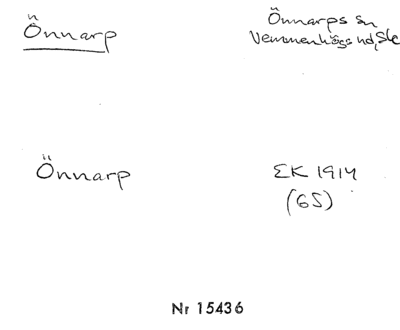 Önnarp
Önnarps sn
Vemmenhögs hd, Sk
Önnarp
EK 1914
(GS)
Nr 15436